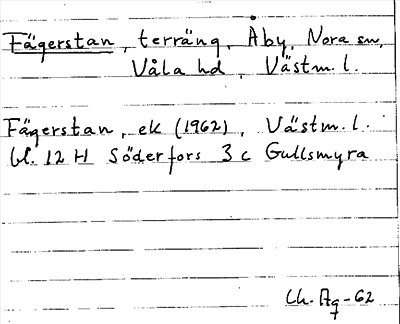 Fägerstan, terräng, Åby, Nora sn,
Våla hd, Västm. l.
Fägerstan, ek (1962), Västm. l.
bl. 12 H Söderfors 3 c Gullsmyra
Ch. Ag -62